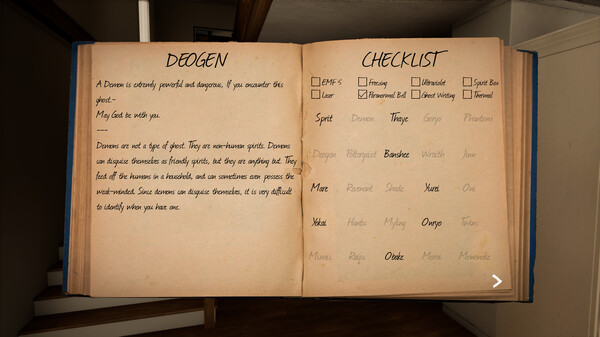 DEOGEN
A Demon is extremely powerful and dangerous, If you encounter this
ghost,-
May God be with you.
---
Demons are not a type of ghost. They are non-human spirits. Demons
can disguise themselves as friendly spirits, but they are anything but. They
feed off the humans in a household, and can sometimes even possess the
weak-minded. Since demons can disguise themselves, it is very difficult
to identify when you have one.
CHECKLIST
EMF 5 Freezing Ultraviolet Spirit Box
Laser Paranormal Bill Ghost Writing Thermal
Spirit Demon Thaye Goryo Phantom
Deogen Poltergeist Banshee Wraith Jinn
Mare Revenant Shade Yurei Oni
Yokai Hantu Myling Onryo Twins
Mimic Raiju Obake Moroi